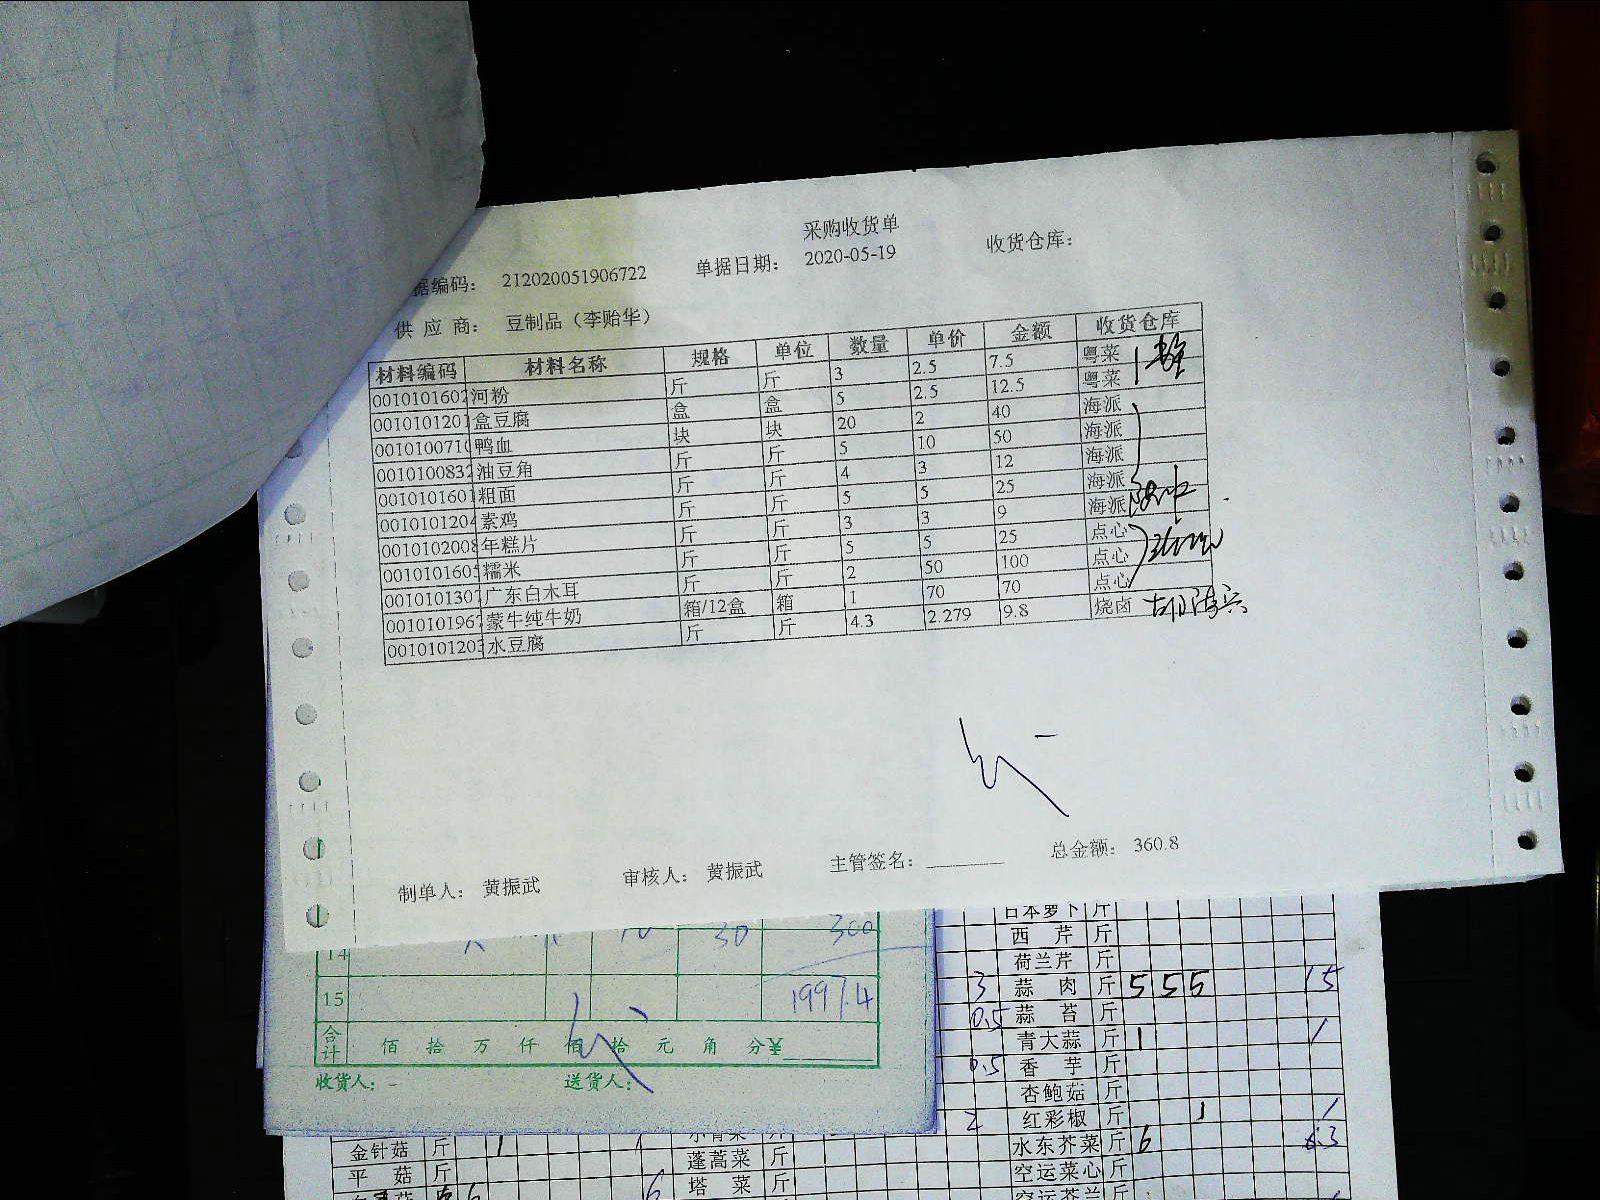 采购收货单
据编码： 212020051906722 单据日期： 2020-05-19 收货仓库：
供 应 商： 豆制品（李贻华）
材料编码 材料名称 规格 单位 数量 单价 金额 收货仓库
0010101602 河粉 斤 斤 3 2.5 7.5 粤菜
0010101201 盒豆腐 盒 盒 5 2.5 12.5 粤菜
0010100710 鸭血 块 块 20 2 40 海派
0010100832 油豆角 斤 斤 5 10 50 海派
0010101601 粗面 斤 斤 4 3 12 海派
0010101204 素鸡 斤 斤 5 5 25 海派
0010102008 年糕片 斤 斤 3 3 9 海派
0010101605 糯米 斤 斤 5 5 25 点心
0010101307 广东白木耳 斤 斤 2 50 100 点心
0010101967 蒙牛纯牛奶 箱/12盒 箱 1 70 70 点心
0010101203 水豆腐 斤 斤 4.3 2.279 9.8 烧卤
制单人： 黄振武 审核人： 黄振武 主管签名：________ 总金额： 360.8
14 30 300
15 1997.4
合计 佰 拾 万 仟 佰 拾 元 角 分¥
收货人： 送货人：
日本萝卜 斤
西 芹 斤
荷兰芹 斤
3 蒜 肉 斤 5 5 5 15
0.5 蒜 苔 斤
青大蒜 斤 1 1
0.5 香 芋 斤
杏鲍菇 斤
2 红彩椒 斤 1 1
金针菇 斤 1 水东芥菜 斤 6 6.3
平 菇 斤 蓬蒿菜 斤 空运菜心 斤
6 塔 菜 斤 空运芥兰 斤